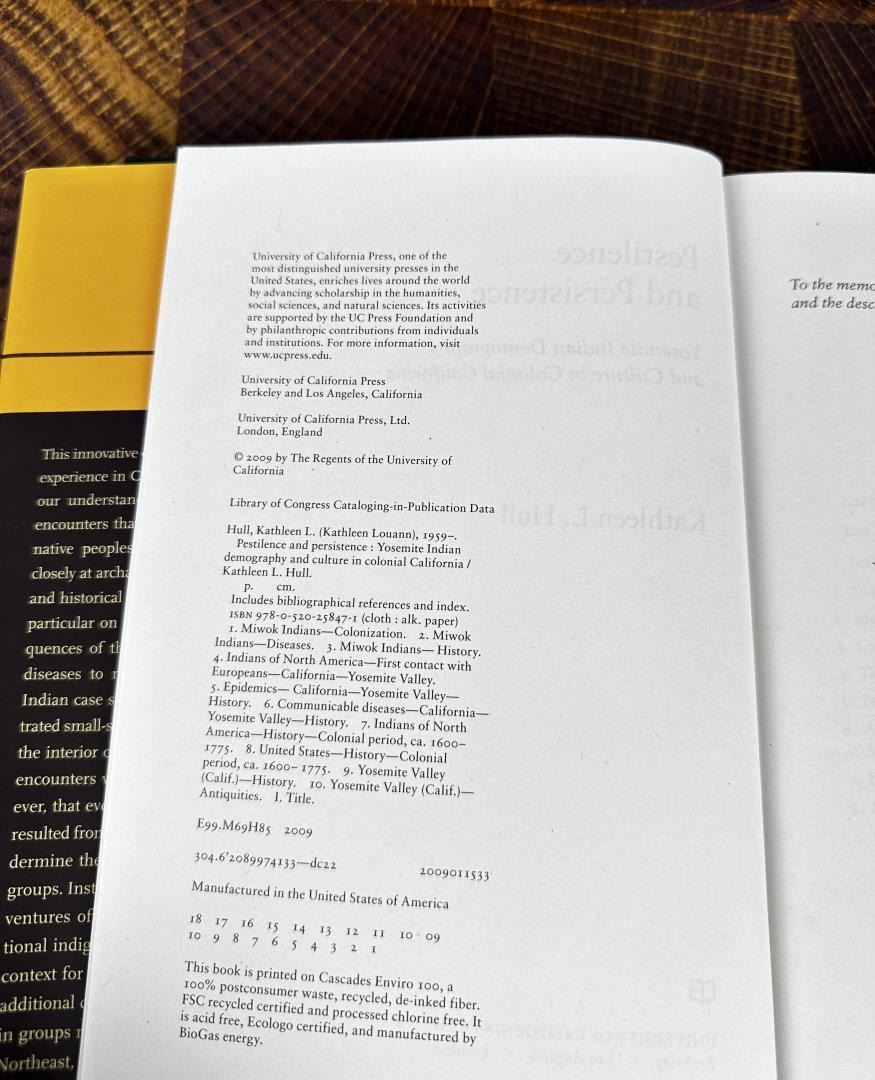 University of California Press, one of the
most distinguished university presses in the
United States, enriches lives around the world
by advancing scholarship in the humanities,
social sciences, and natural sciences. Its activities
are supported by the UC Press Foundation and
by philanthropic contributions from individuals
and institutions. For more information, visit
www.ucpress.edu.
University of California Press
Berkeley and Los Angeles, California
University of California Press, Ltd.
London, England
© 2009 by The Regents of the University of
California
Library of Congress Cataloging-in-Publication Data
Hull, Kathleen L. (Kathleen Louann), 1959–.
Pestilence and persistence : Yosemite Indian
demography and culture in colonial California /
Kathleen L. Hull.
p. cm.
Includes bibliographical references and index.
ISBN 978-0-520-25847-1 (cloth : alk. paper)
1. Miwok Indians—Colonization. 2. Miwok
Indians—Diseases. 3. Miwok Indians— History.
4. Indians of North America—First contact with
Europeans—California—Yosemite Valley.
5. Epidemics— California—Yosemite Valley—
History. 6. Communicable diseases—California—
Yosemite Valley—History. 7. Indians of North
America—History—Colonial period, ca. 1600–
1775. 8. United States—History—Colonial
period, ca. 1600– 1775. 9. Yosemite Valley
(Calif.)—History. 10. Yosemite Valley (Calif.)—
Antiquities. I. Title.
E99.M69H85 2009
304.6'2089974133—dc22
2009011533
Manufactured in the United States of America
18 17 16 15 14 13 12 11 10 09
10 9 8 7 6 5 4 3 2 1
This book is printed on Cascades Enviro 100, a
100% postconsumer waste, recycled, de-inked fiber.
FSC recycled certified and processed chlorine free. It
is acid free, Ecologo certified, and manufactured by
BioGas energy.
To the memo
and the desc
This innovative
experience in C
our understan
encounters tha
native peoples
closely at archa
and historical
particular on
quences of th
diseases to
Indian case s
trated small-s
the interior
encounters
ever, that eve
resulted from
dermine the
groups. Inst
ventures of
tional indig
context for
additional
in groups
Northeast,
Pestilence
and Persistence
Yosemite Indian Demography
and Culture in Colonial California
Kathleen L. Hull